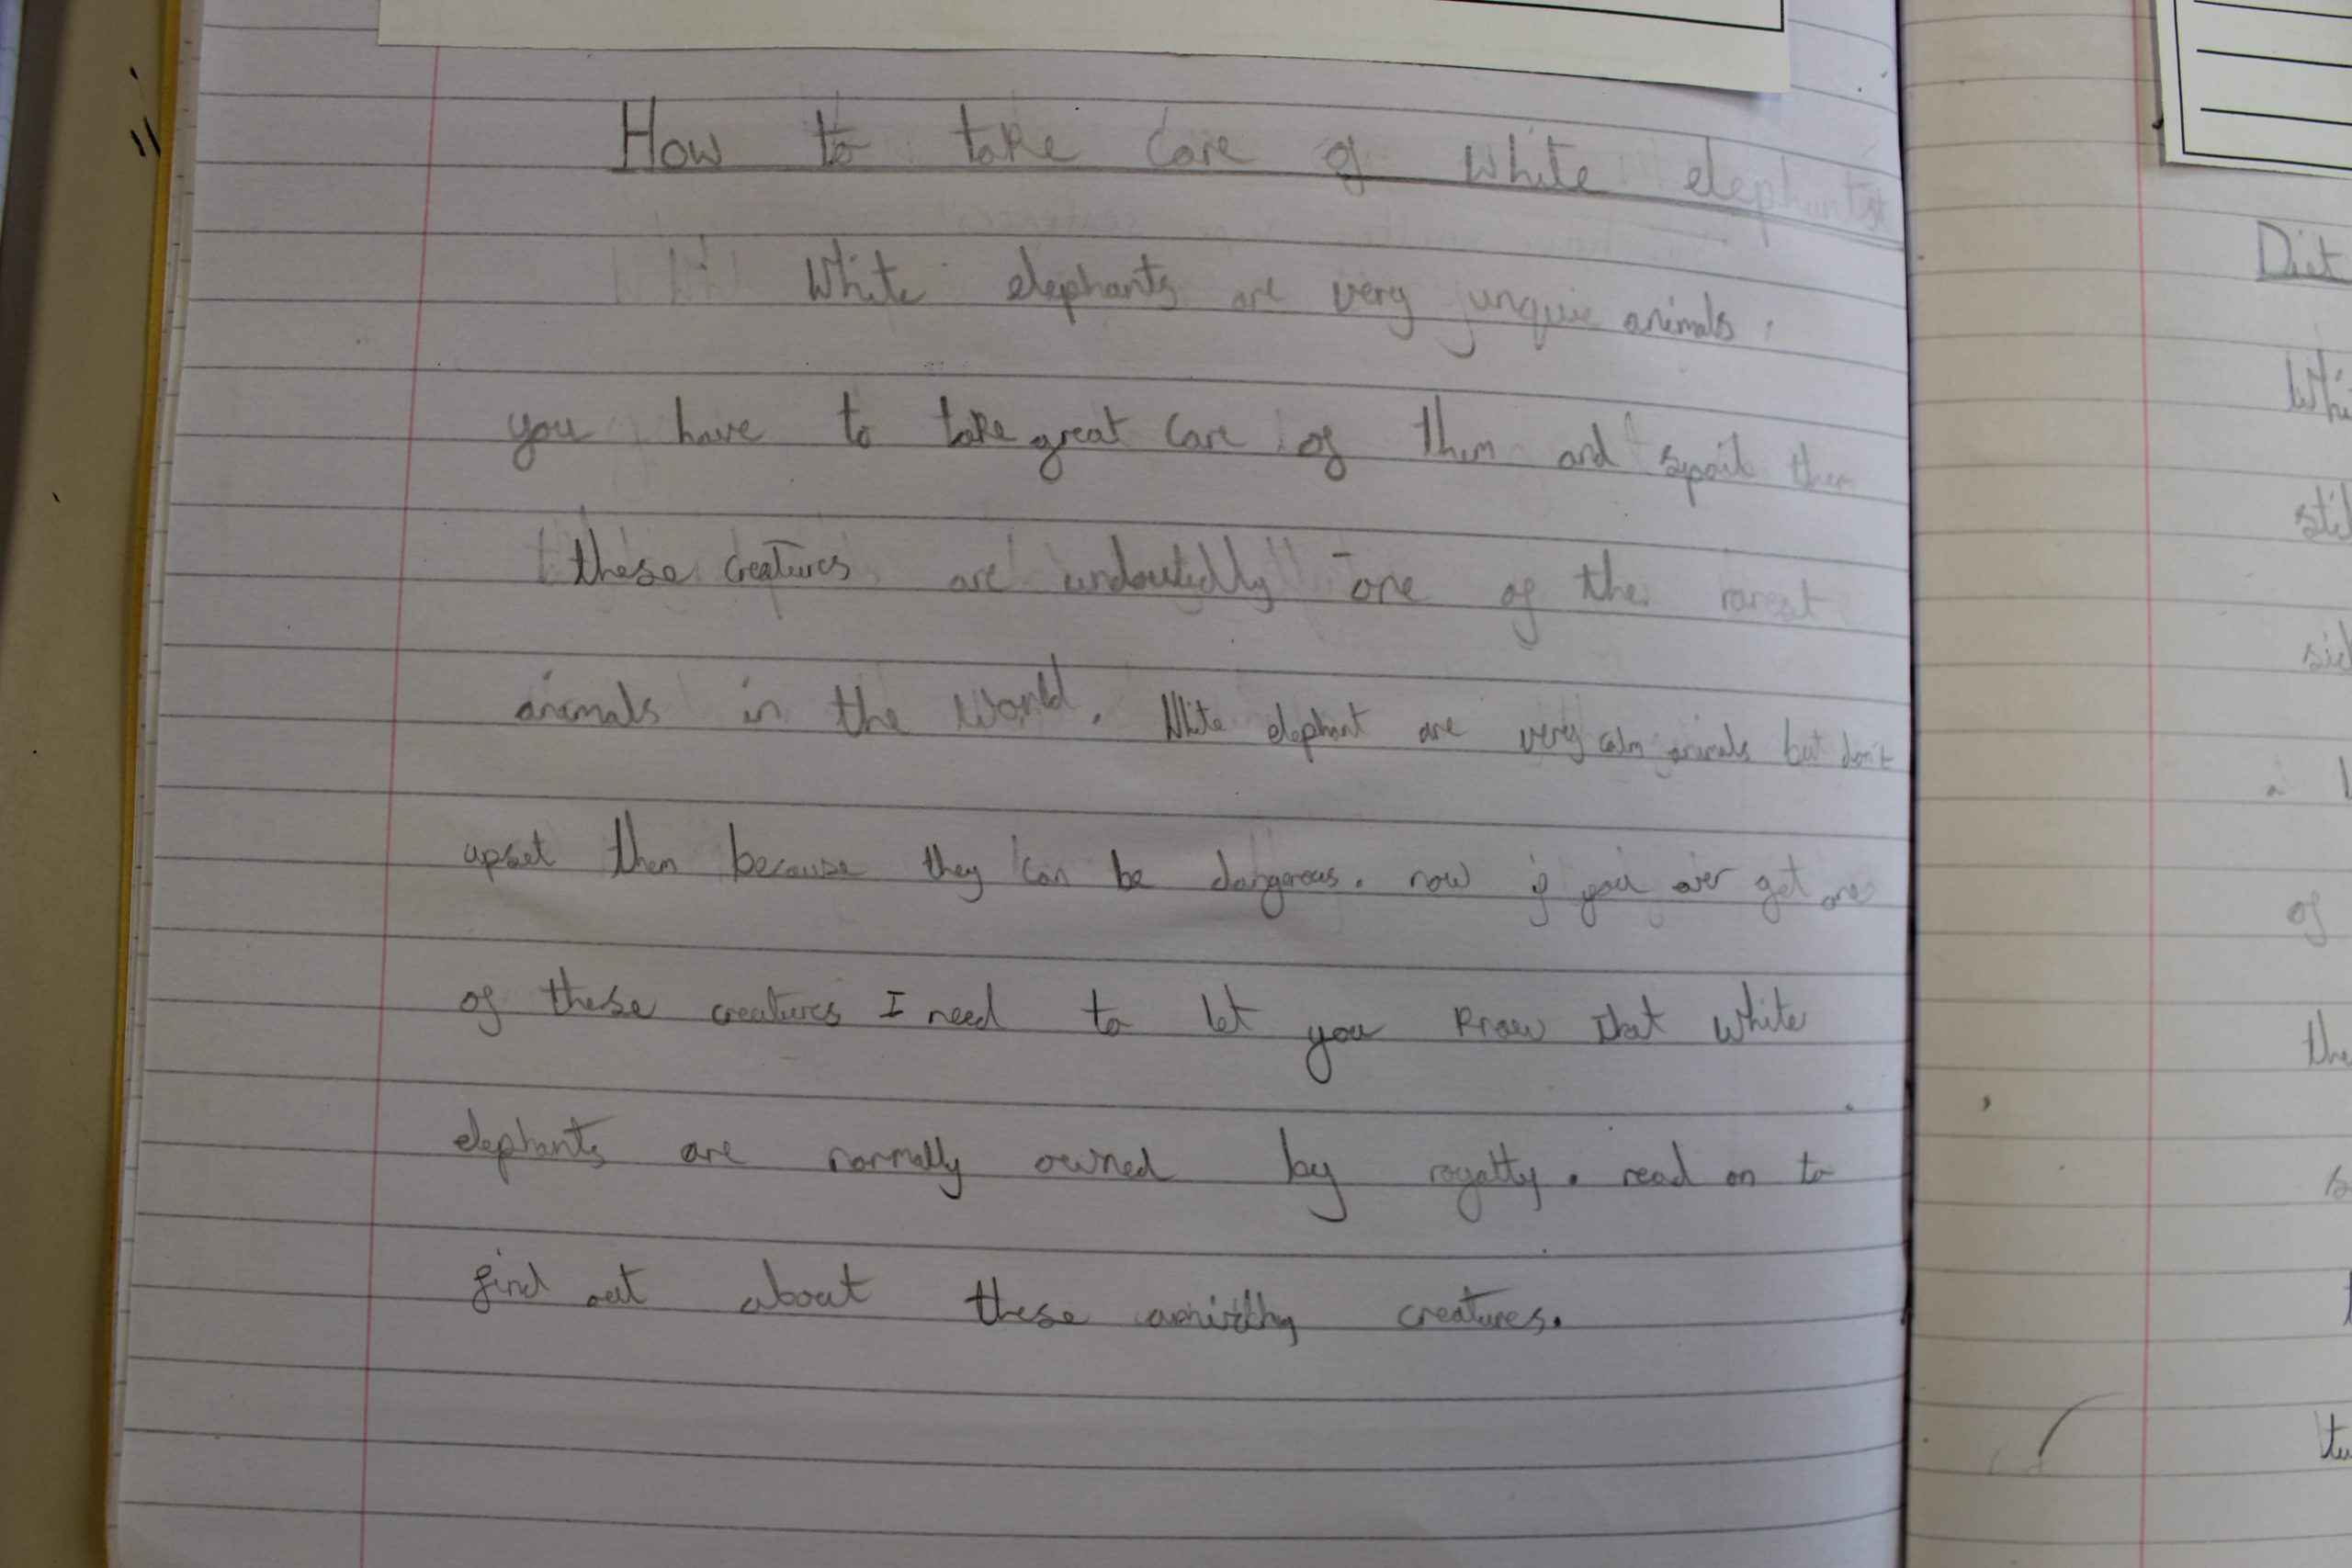 How to take care of white elephants
White elephants are very unquie animals.
you have to take great care of them and spoil them
these creatures are undoutedly one of the rarest
animals in the world. White elephant are very calm animals but don't
upset them because they can be dangerous. now if you ever get one
of these creatures I need to let you know that white
elephants are normally owned by royalty. read on to
find out about these creatures.
Diet
Whi
stil
sid
a
of
the
s
t
tu